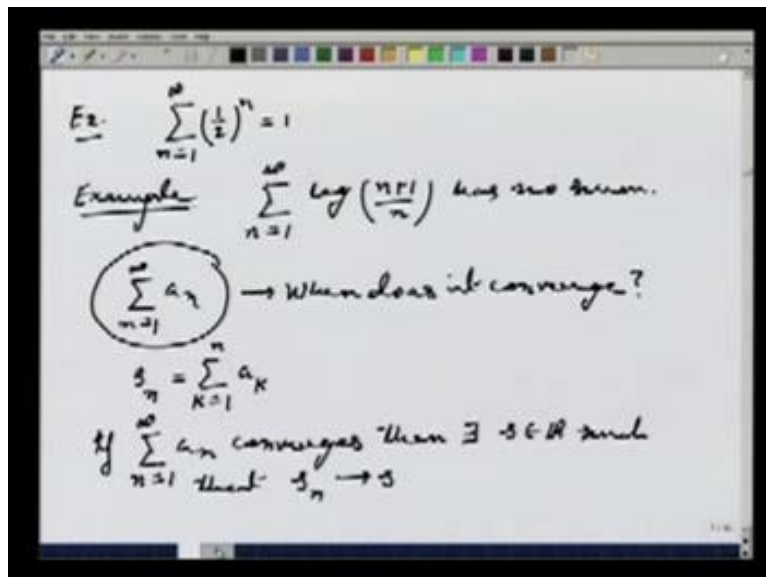 Ex. ∞∑n=1 (1/2)^n = 1
Example ∞∑n=1 log (n+1/n) has no sum.
∞∑n=1 a_n → When does it converge?
s_n = n∑k=1 a_k
If ∞∑n=1 a_n converges then ∃ s ∈ ℝ such
that s_n → s